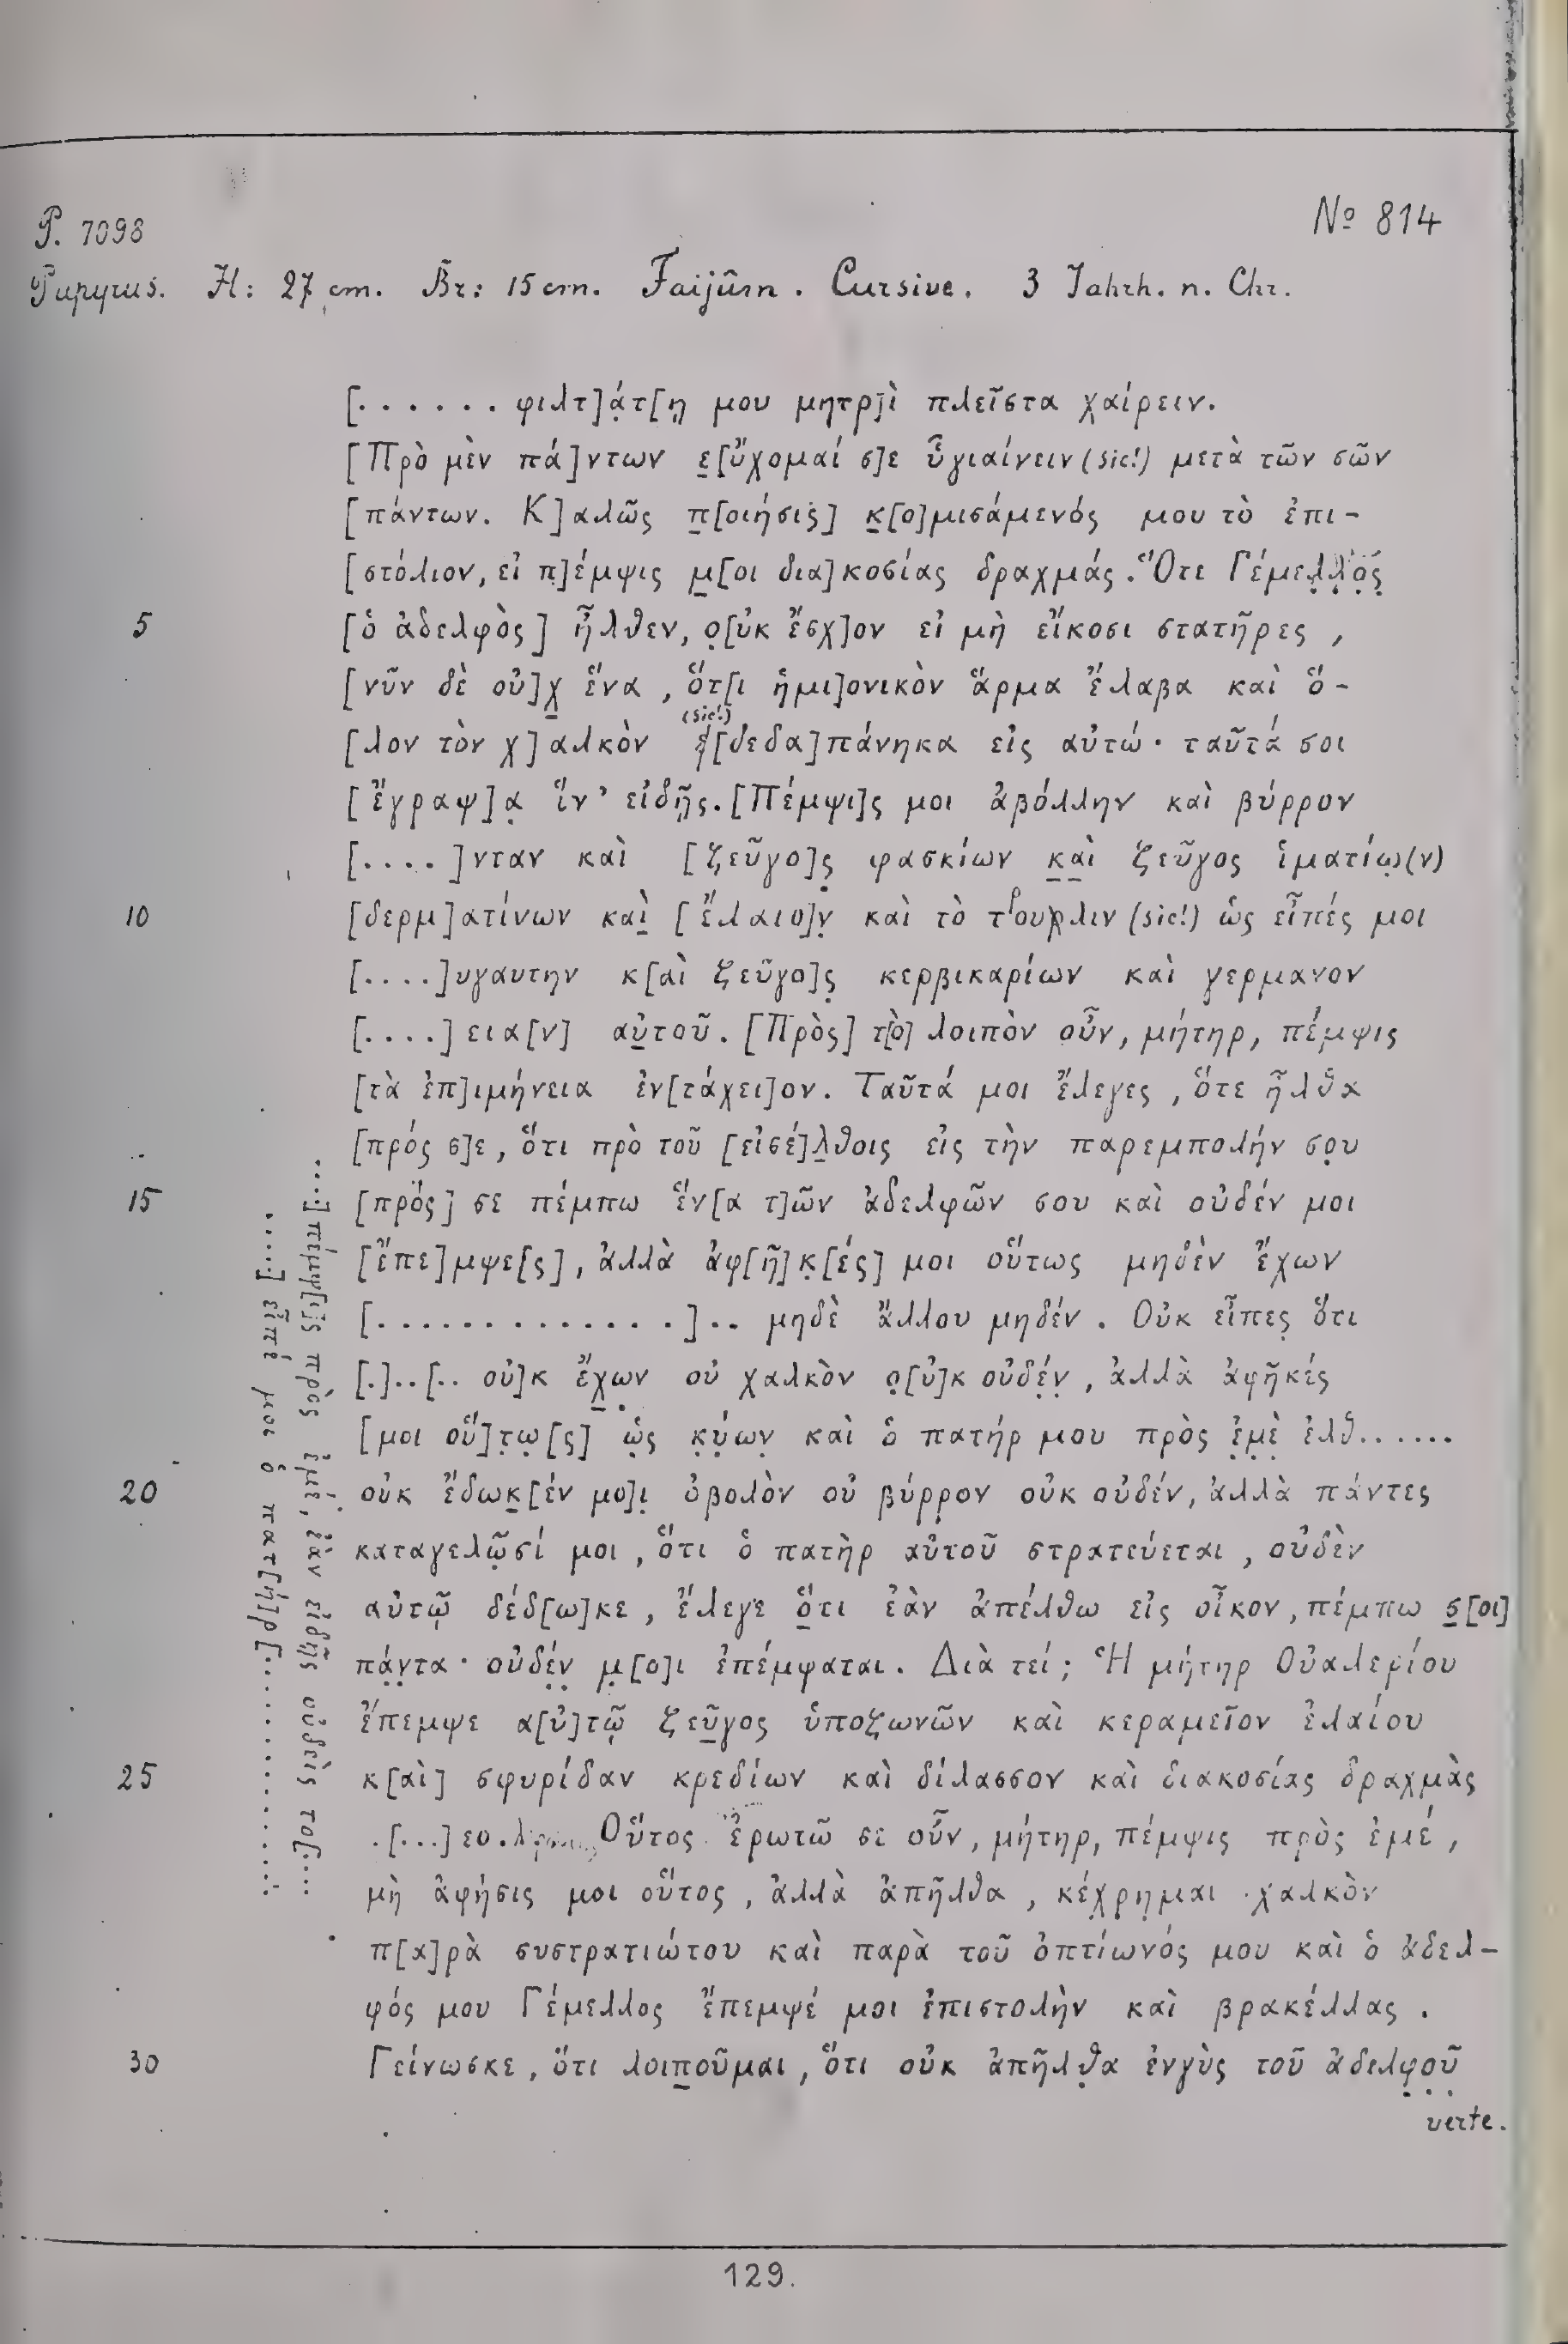 P. 7098
№ 814
Papyrus. H: 27 cm. Br: 15 cm. Faijûm. Cursive. 3 Jahrh. n. Chr.
[. . . . . . φιλτ]ά̣τ[ῃ μου μητρ]ὶ πλεῖστα χαίρειν.
[Πρὸ μὲν πά]ντων ε̲[ὔχομαί σ]ε ὑ̑γιαίνειν (sic!) μετὰ τῶν σῶν
[πάντων. Κ]αλῶς π̲[οιήσις] κ̲[ο]μισάμενός μου τὸ ἐπι-
[στόλιον, εἰ π]έμψις μ̲[οι δια]κοσίας δραχμάς. Ὅτε Γέμελ̣λ̣ο̣ς̣
5 [ὁ ἀδελφὸς] ἦλθεν, ο̣[ὐκ ἔσχ]ον εἰ μὴ εἴκοσι στατῆρες,
[νῦν δὲ οὐ]χ̲ ἕνα, ὅτ[ι ἡμι]ονικὸν ἅρμα ἔλαβα καὶ ὅ-
(sic!)
[λον τὸν χ]αλκὸν ἐ[δεδα]πάνηκα εἰς αὐτώ· ταῦτά σοι
[ἔγραψ]α̣ ἵν' εἰδῇς. [Πέμψι]ς μοι ἀβόλλην καὶ βύρρον
[. . . .]νταν καὶ [ζεῦγο]ς̣ φασκίων κ̲α̲ὶ ζεῦγος ἱματίω̣(ν)
10 [δερμ]ατίνων καὶ̲ [ἔλαιο]ν̣ καὶ τὸ τρουβλιν (sic!) ὡς εἶπές μοι
[. . . .]υγαυτην κ[αὶ ζεῦγο]ς̣ κερβικαρίων καὶ γερμανον
[. . . .]εια[ν] αὐ̲τοῦ. [Πρὸς] τ[ὸ] λοιπὸν οὖν, μήτηρ, πέμψις
[τὰ ἐπ]ιμήνεια ἐν[τάχει]ον. Ταῦτά μοι ἔλεγες, ὅτε ἦλθα
[πρός σ]ε, ὅτι πρὸ τοῦ [εἰσέ]λ̲θοις εἰς τὴν παρεμπολήν σο̣υ
15 [πρός] σε πέμπω ἕν[α τ]ῶν ἀδελφῶν σου καὶ οὐδέν μοι
[ἔπε]μψε[ς], ἀλλὰ ἀφ[ῆ]κ̣[ές] μοι οὕτως μηδὲν ἔχων
[. . . . . . . . . . . . . .] . . μηδὲ ἄλλου μηδέν. Οὐκ εἶπες ὅτι
[.]..[.. οὐ]κ ἔχ̲ω̣ν οὐ χαλκὸν ο̣[ὐ]κ οὐδέ̣ν̣, ἀλλὰ ἀφῆκές
[μοι οὕ]τ̣ω̣[ς] ὡ̣ς κ̣ύ̣ων̣ καὶ ὁ πατήρ μου πρὸς ἐ̣μ̣ὲ̣ ἐλθ......
20 οὐκ ἔδωκ̲[έν μο]ι̣ ὀβολὸν οὐ βύρρ̣ον οὐκ οὐδέν, ἀλλὰ πάντες
καταγελῶ̣σί μοι, ὅτι ὁ πατὴρ αὐτοῦ στρατεύεται, οὐδὲν
αὐτῷ δέδ[ω]κε, ἔλεγε ὅ̲τι ἐὰν ἀπέλθω εἰς οἶκον, πέμπω σ̲[οι]
πά̣ν̣τα· οὐδέ̣ν̣ μ̣[ο]ι ἐπέμψαται. Διὰ τεί; Ἡ μήτηρ Οὐαλερίου
ἔπεμψε α[ὐ]τῷ ζεῦ̲γος ὑποζωνῶν καὶ κεραμεῖον ἐλαίου
25 κ[αὶ] σφυρίδαν κρεδίων καὶ δίλασσον καὶ διακοσίας δραχμὰς
.[...]εο. Οὕτος ἐρωτῶ σε οὖν, μήτηρ, πέμψις πρὸς ἐμέ,
μὴ ἀφήσις μοι οὕτος, ἀλλὰ ἀπῆλθα, κέχ̣ρη̣μαι χαλκὸν
π[α]ρὰ συστρατιώτου καὶ παρὰ τοῦ ὀπτίωνός μου καὶ ὁ ἀδελ-
φός μου Γέμελλος ἔπεμψέ μοι ἐπιστολὴν καὶ βρακέλλας.
30 Γείνωσκε, ὅτι λοιπ̲οῦμαι, ὅτι οὐκ ἀπῆλθ̣α ἐνγὺς τοῦ ἀδελφ̣ο̣ῦ̣
verte.
....[πέμψ[ι]ς πρὸς ἐμέ, ἐὰν εἰδῇ̲ς οὐδεὶς το[....
.....] εἶπέ μοι ὁ πατ[ὴ]ρ[............
129.